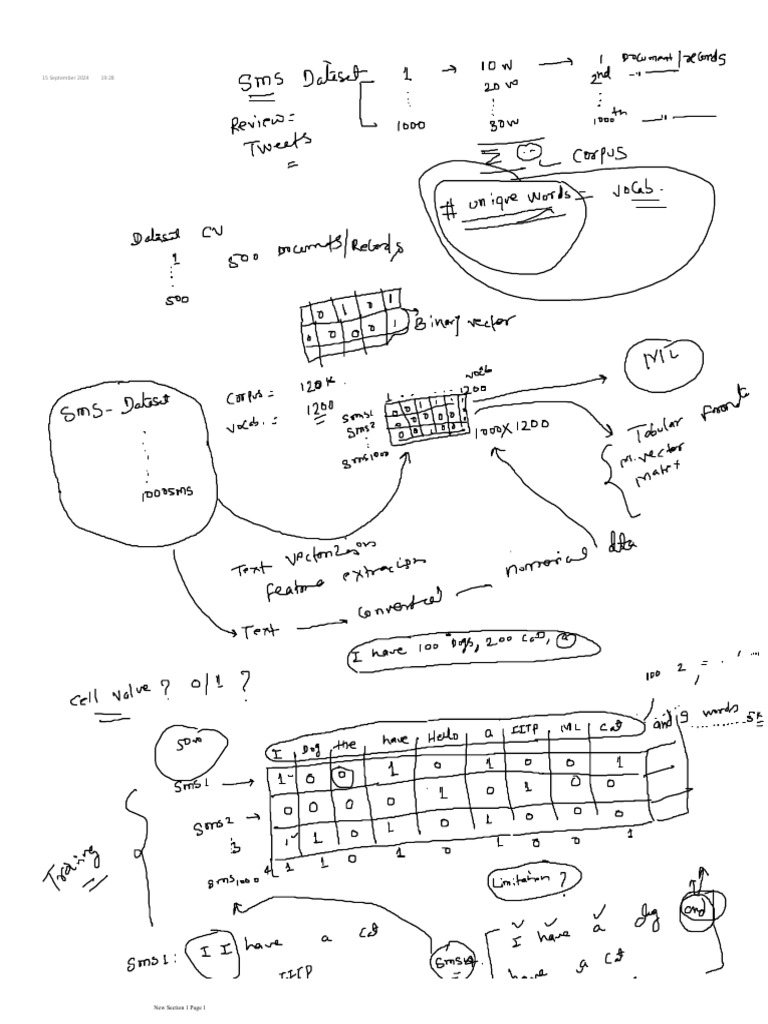 15 September 2024 19:26
SMS Dataset 1 → 10 W → 1 Document/records
20 W 2nd -"-
Review =
1000 30W 1000th -"-
Tweets
=
Corpus
# unique words = vocab.
Dataset CV
1 500 Documents/Records
500
0 1 0 1
0 0 0 0 1 Binary vector
ML
SMS-Dataset
1000 SMS
Corpus = 120K.
Vocab. = 1200
vocab
1 1200
SMS1 0 0 1 1 1
SMS2 0 0 0 0 0
0 0 1 0 0
SMS1000
1000X1200
Tabular
M.vector
Matrix
Text Vectorization
Feature extraction
Text → Converted — numerical data
I have 100 Dogs, 200 Cats, a
Cell value? 0/1?
100 2 =
5000
I Dog the have Hello a IITP ML Cat and 9 words 5K
SMS1 → 1 0 0 1 0 1 0 0 1
SMS2 → 0 0 0 0 1 0 1 0 0
3 1 1 0 1 0 1 0 0 0
4 1 1 0 1 0 1 0 0 1
SMS1000
Training
Limitation?
SMS1: I I have a Cat
IITP
SMS4: I have a dog and
have a Cat
New Section 1 Page 1